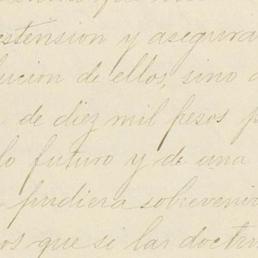 estension y asegura
lucion de ellos, sino
de diez mil pesos
lo futuro y de una
pudiera sobrevenir
os que si las doctrin